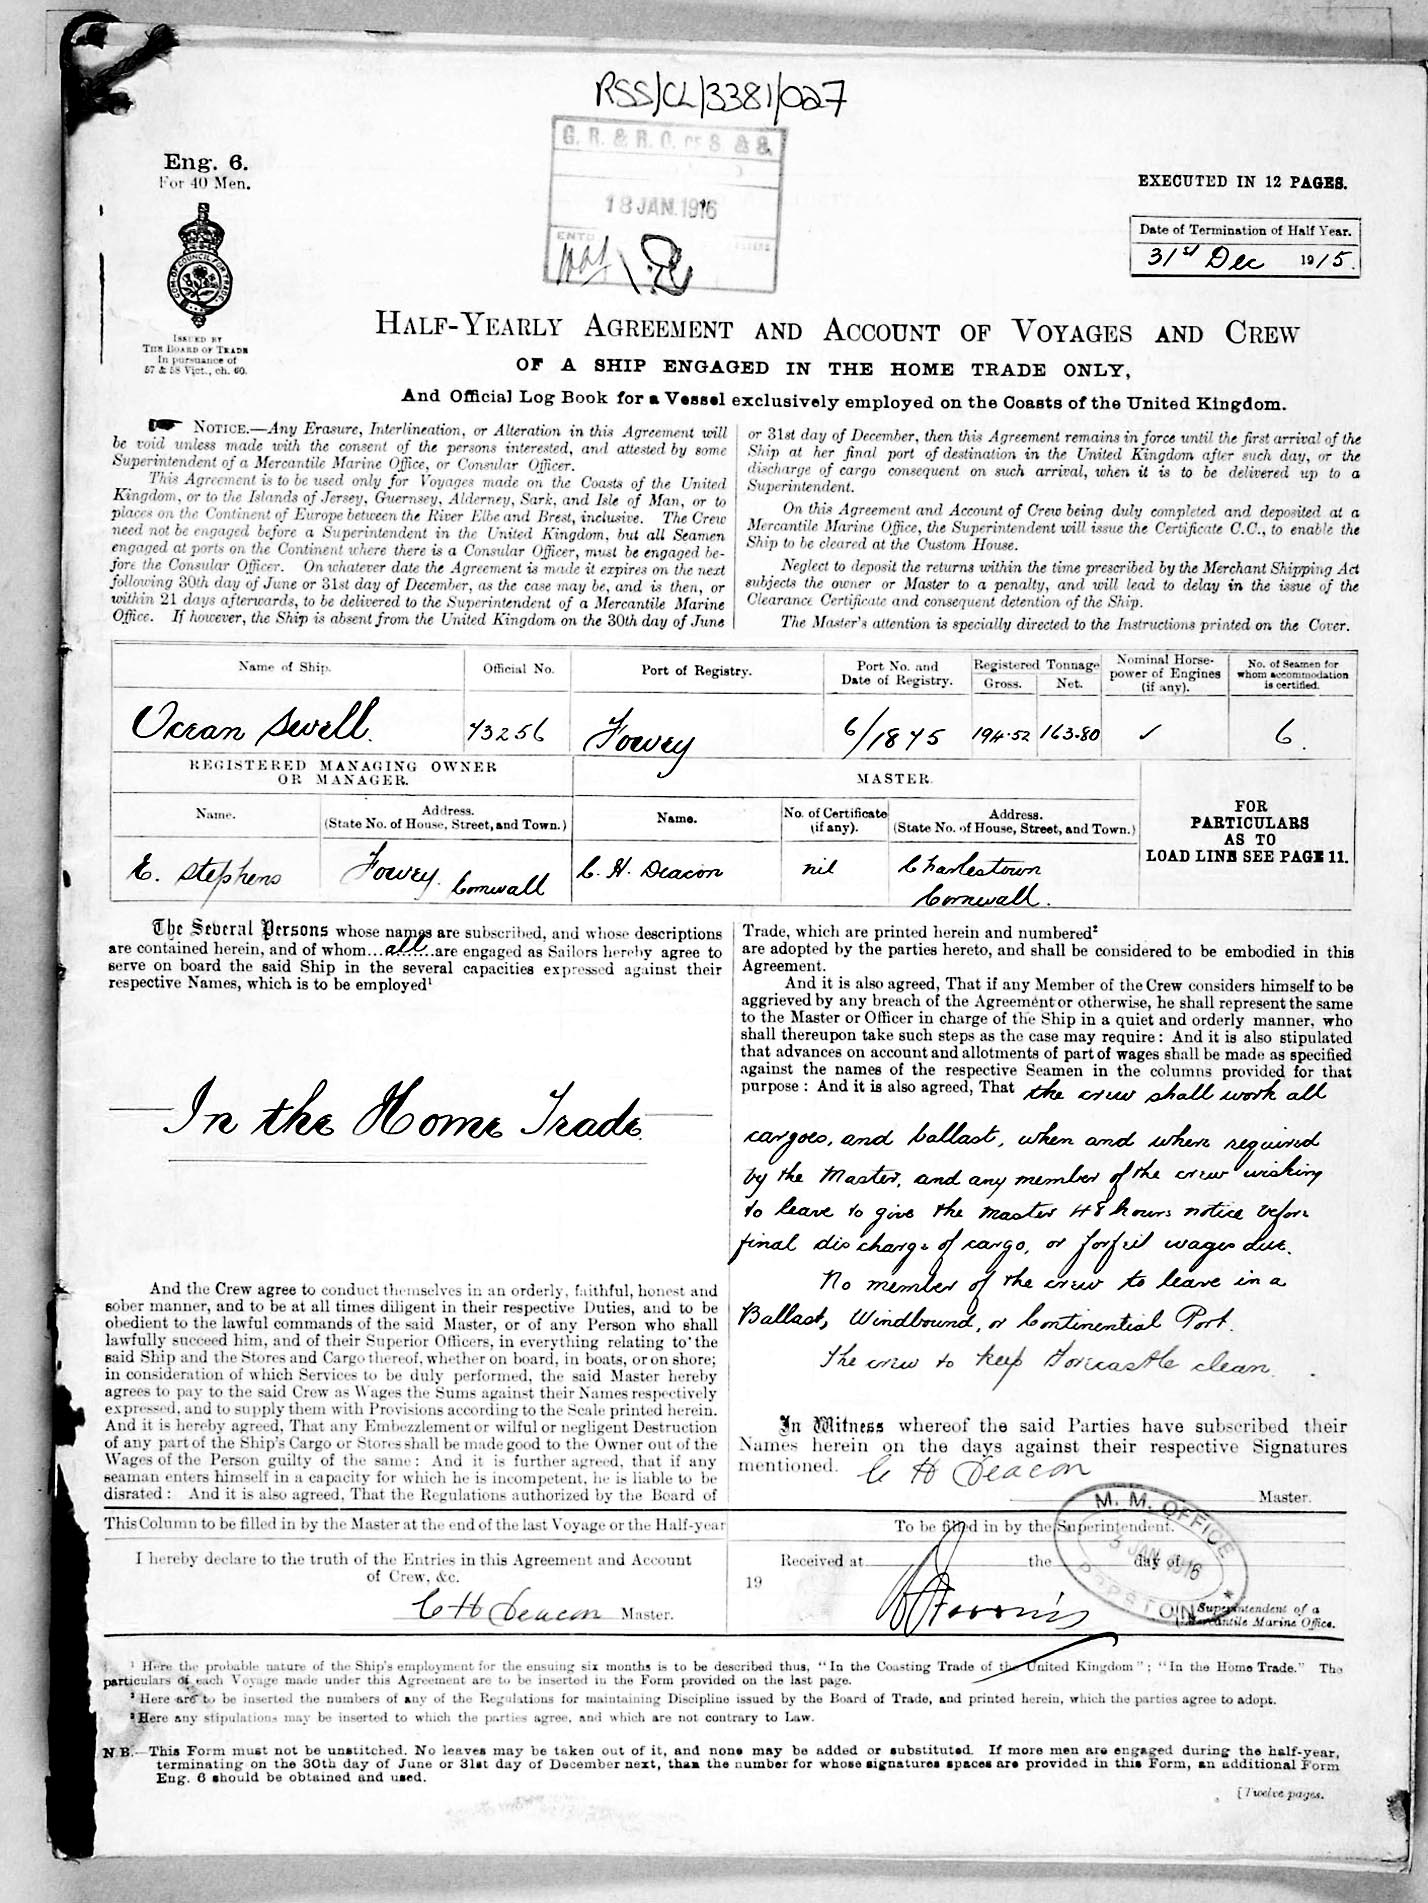 RSS/CL/3381/027
G. R. & R. O. OF S. & S.
18 JAN. 1916
Eng. 6.
For 40 Men.
EXECUTED IN 12 PAGES.
Date of Termination of Half Year.
31st Dec 1915.
COM. OF COUNCIL FOR TRADE
ISSUED BY
THE BOARD OF TRADE
In pursuance of
57 & 58 Vict., ch. 60.
HALF-YEARLY AGREEMENT AND ACCOUNT OF VOYAGES AND CREW
OF A SHIP ENGAGED IN THE HOME TRADE ONLY,
And Official Log Book for a Vessel exclusively employed on the Coasts of the United Kingdom.
NOTICE.—Any Erasure, Interlineation, or Alteration in this Agreement will
be void unless made with the consent of the persons interested, and attested by some
Superintendent of a Mercantile Marine Office, or Consular Officer.
This Agreement is to be used only for Voyages made on the Coasts of the United
Kingdom, or to the Islands of Jersey, Guernsey, Alderney, Sark, and Isle of Man, or to
places on the Continent of Europe between the River Elbe and Brest, inclusive. The Crew
need not be engaged before a Superintendent in the United Kingdom, but all Seamen
engaged at ports on the Continent where there is a Consular Officer, must be engaged be-
fore the Consular Officer. On whatever date the Agreement is made it expires on the next
following 30th day of June or 31st day of December, as the case may be, and is then, or
within 21 days afterwards, to be delivered to the Superintendent of a Mercantile Marine
Office. If however, the Ship is absent from the United Kingdom on the 30th day of June
or 31st day of December, then this Agreement remains in force until the first arrival of the
Ship at her final port of destination in the United Kingdom after such day, or the
discharge of cargo consequent on such arrival, when it is to be delivered up to a
Superintendent.
On this Agreement and Account of Crew being duly completed and deposited at a
Mercantile Marine Office, the Superintendent will issue the Certificate C.C., to enable the
Ship to be cleared at the Custom House.
Neglect to deposit the returns within the time prescribed by the Merchant Shipping Act
subjects the owner or Master to a penalty, and will lead to delay in the issue of the
Clearance Certificate and consequent detention of the Ship.
The Master's attention is specially directed to the Instructions printed on the Cover.
Name of Ship. Official No. Port of Registry. Port No. and Date of Registry. Registered Tonnage Gross. Net. Nominal Horse-power of Engines (if any). No. of Seamen for whom accommodation is certified.
Ocean Swell. 73256 Fowey 6/1875 194.52 163.80 ✓ 6.
REGISTERED MANAGING OWNER
OR MANAGER.
MASTER.
Name. Address. (State No. of House, Street, and Town.) Name. No. of Certificate (if any). Address. (State No. of House, Street, and Town.)
FOR
PARTICULARS
AS TO
LOAD LINE SEE PAGE 11.
E. Stephens Fowey. Cornwall C. H. Deacon nil Charlestown
Cornwall.
The Several Persons whose names are subscribed, and whose descriptions
are contained herein, and of whom...all...are engaged as Sailors hereby agree to
serve on board the said Ship in the several capacities expressed against their
respective Names, which is to be employed¹
In the Home Trade
And the Crew agree to conduct themselves in an orderly, faithful, honest and
sober manner, and to be at all times diligent in their respective Duties, and to be
obedient to the lawful commands of the said Master, or of any Person who shall
lawfully succeed him, and of their Superior Officers, in everything relating to the
said Ship and the Stores and Cargo thereof, whether on board, in boats, or on shore;
in consideration of which Services to be duly performed, the said Master hereby
agrees to pay to the said Crew as Wages the Sums against their Names respectively
expressed, and to supply them with Provisions according to the Scale printed herein.
And it is hereby agreed, That any Embezzlement or wilful or negligent Destruction
of any part of the Ship's Cargo or Stores shall be made good to the Owner out of the
Wages of the Person guilty of the same: And it is further agreed, that if any
seaman enters himself in a capacity for which he is incompetent, he is liable to be
disrated: And it is also agreed, That the Regulations authorized by the Board of
Trade, which are printed herein and numbered²
are adopted by the parties hereto, and shall be considered to be embodied in this
Agreement.
And it is also agreed, That if any Member of the Crew considers himself to be
aggrieved by any breach of the Agreement or otherwise, he shall represent the same
to the Master or Officer in charge of the Ship in a quiet and orderly manner, who
shall thereupon take such steps as the case may require: And it is also stipulated
that advances on account and allotments of part of wages shall be made as specified
against the names of the respective Seamen in the columns provided for that
purpose: And it is also agreed, That the crew shall work all
cargoes, and ballast, when and where required
by the Master, and any member of the crew wishing
to leave to give the master 48 hours notice before
final discharge of cargo, or forfeit wages due.
No member of the crew to leave in a
Ballast, Windbound, or Continential Port.
The crew to keep Forecastle clean.
In Witness whereof the said Parties have subscribed their
Names herein on the days against their respective Signatures
mentioned. C H Deacon
Master.
This Column to be filled in by the Master at the end of the last Voyage or the Half-year
I hereby declare to the truth of the Entries in this Agreement and Account
of Crew, &c.
C H Deacon Master.
To be filled in by the Superintendent.
Received at the day of
19
Superintendent of a
Mercantile Marine Office.
M. M. OFFICE
3 JAN 1916
PADSTOW
¹ Here the probable nature of the Ship's employment for the ensuing six months is to be described thus, "In the Coasting Trade of the United Kingdom"; "In the Home Trade." The
particulars of each Voyage made under this Agreement are to be inserted in the Form provided on the last page.
² Here are to be inserted the numbers of any of the Regulations for maintaining Discipline issued by the Board of Trade, and printed herein, which the parties agree to adopt.
³ Here any stipulations may be inserted to which the parties agree, and which are not contrary to Law.
N.B.—This Form must not be unstitched. No leaves may be taken out of it, and none may be added or substituted. If more men are engaged during the half-year,
terminating on the 30th day of June or 31st day of December next, than the number for whose signatures spaces are provided in this Form, an additional Form
Eng. 6 should be obtained and used.
[Twelve pages.